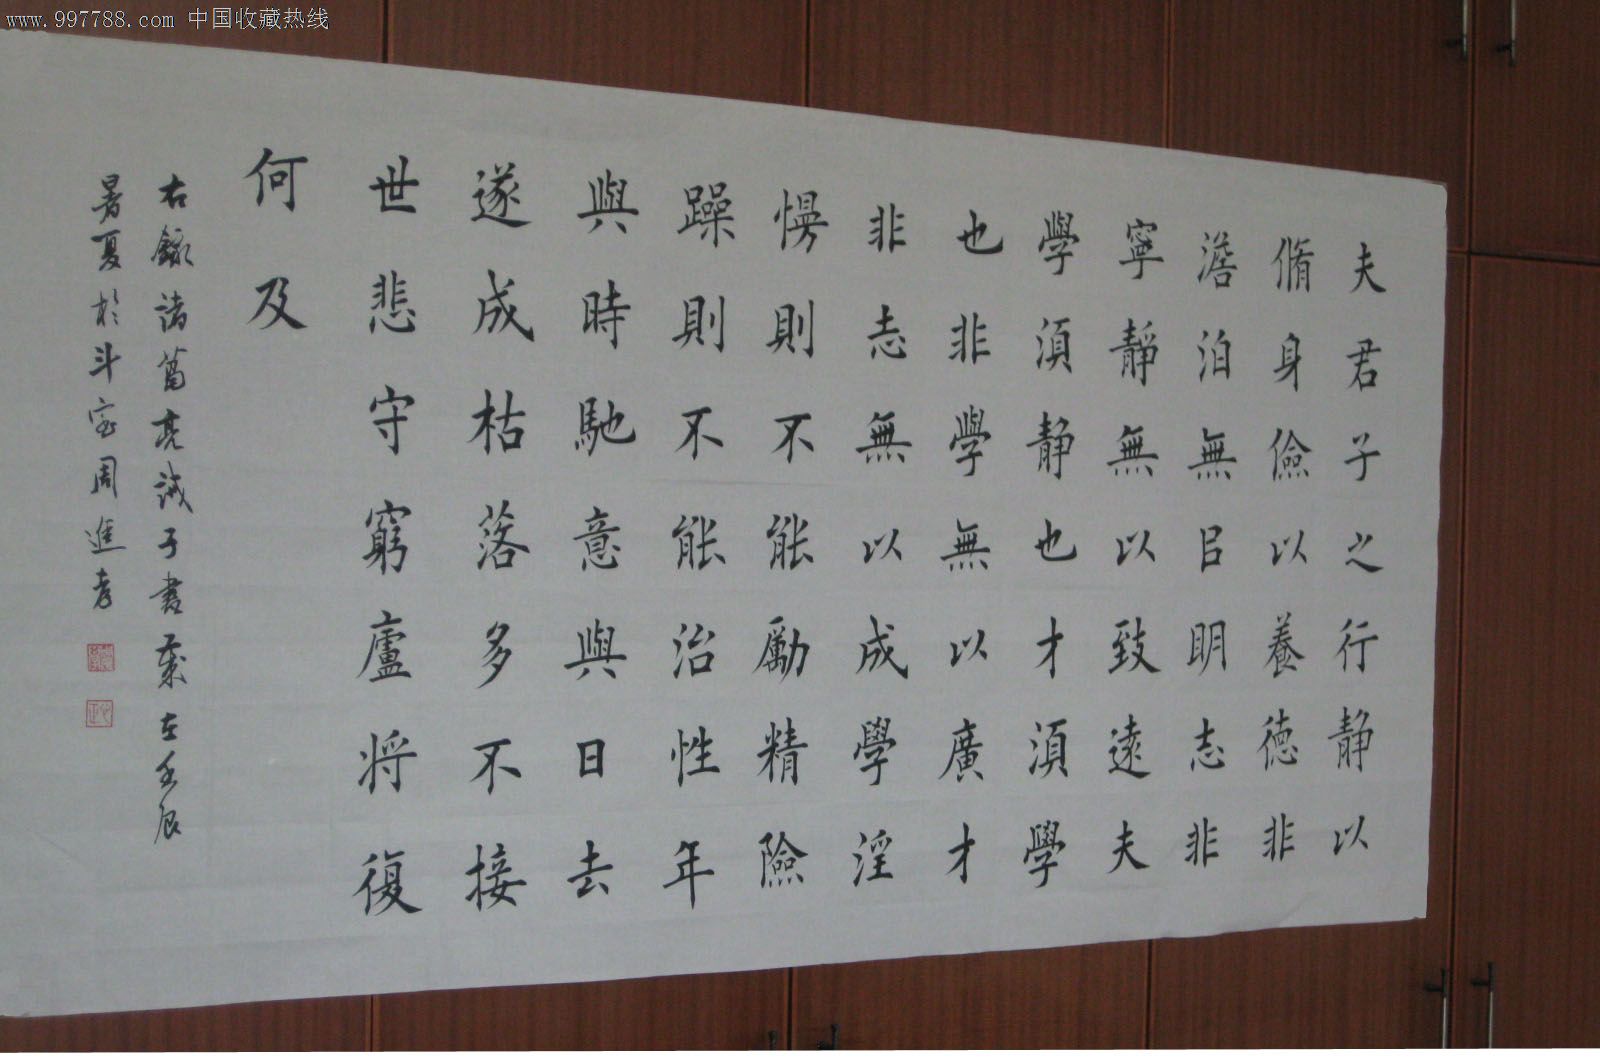 www.997788.com 中国收藏热线
夫君子之行静以
脩身儉以養德非
澹泊無㠯明志非
寧靜無以致遠夫
學須静也才須學
也非學無以廣才
非志無以成學淫
慢則不能勵精險
躁則不能治性年
與時馳意與日去
遂成枯落多不接
世悲守窮廬将復
何及
右錄诸葛亮诫子書歲在壬辰
暑夏於斗室周進孝